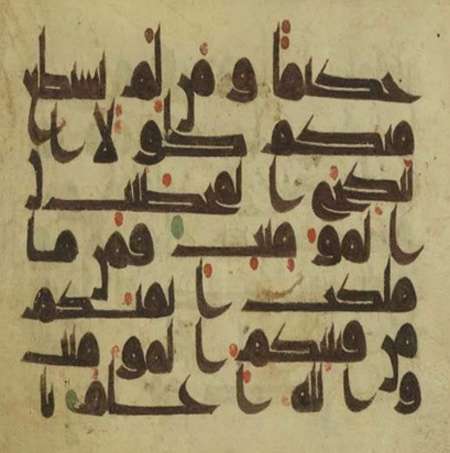 حكيما و من لم يستطع
منكم طولا ا ن
ينكح ا لمحصنت
ا لمو منت فمن ما
ملكت ا يمنكم
من فتيتكم ا لمو منت
و ا لله ا علم با